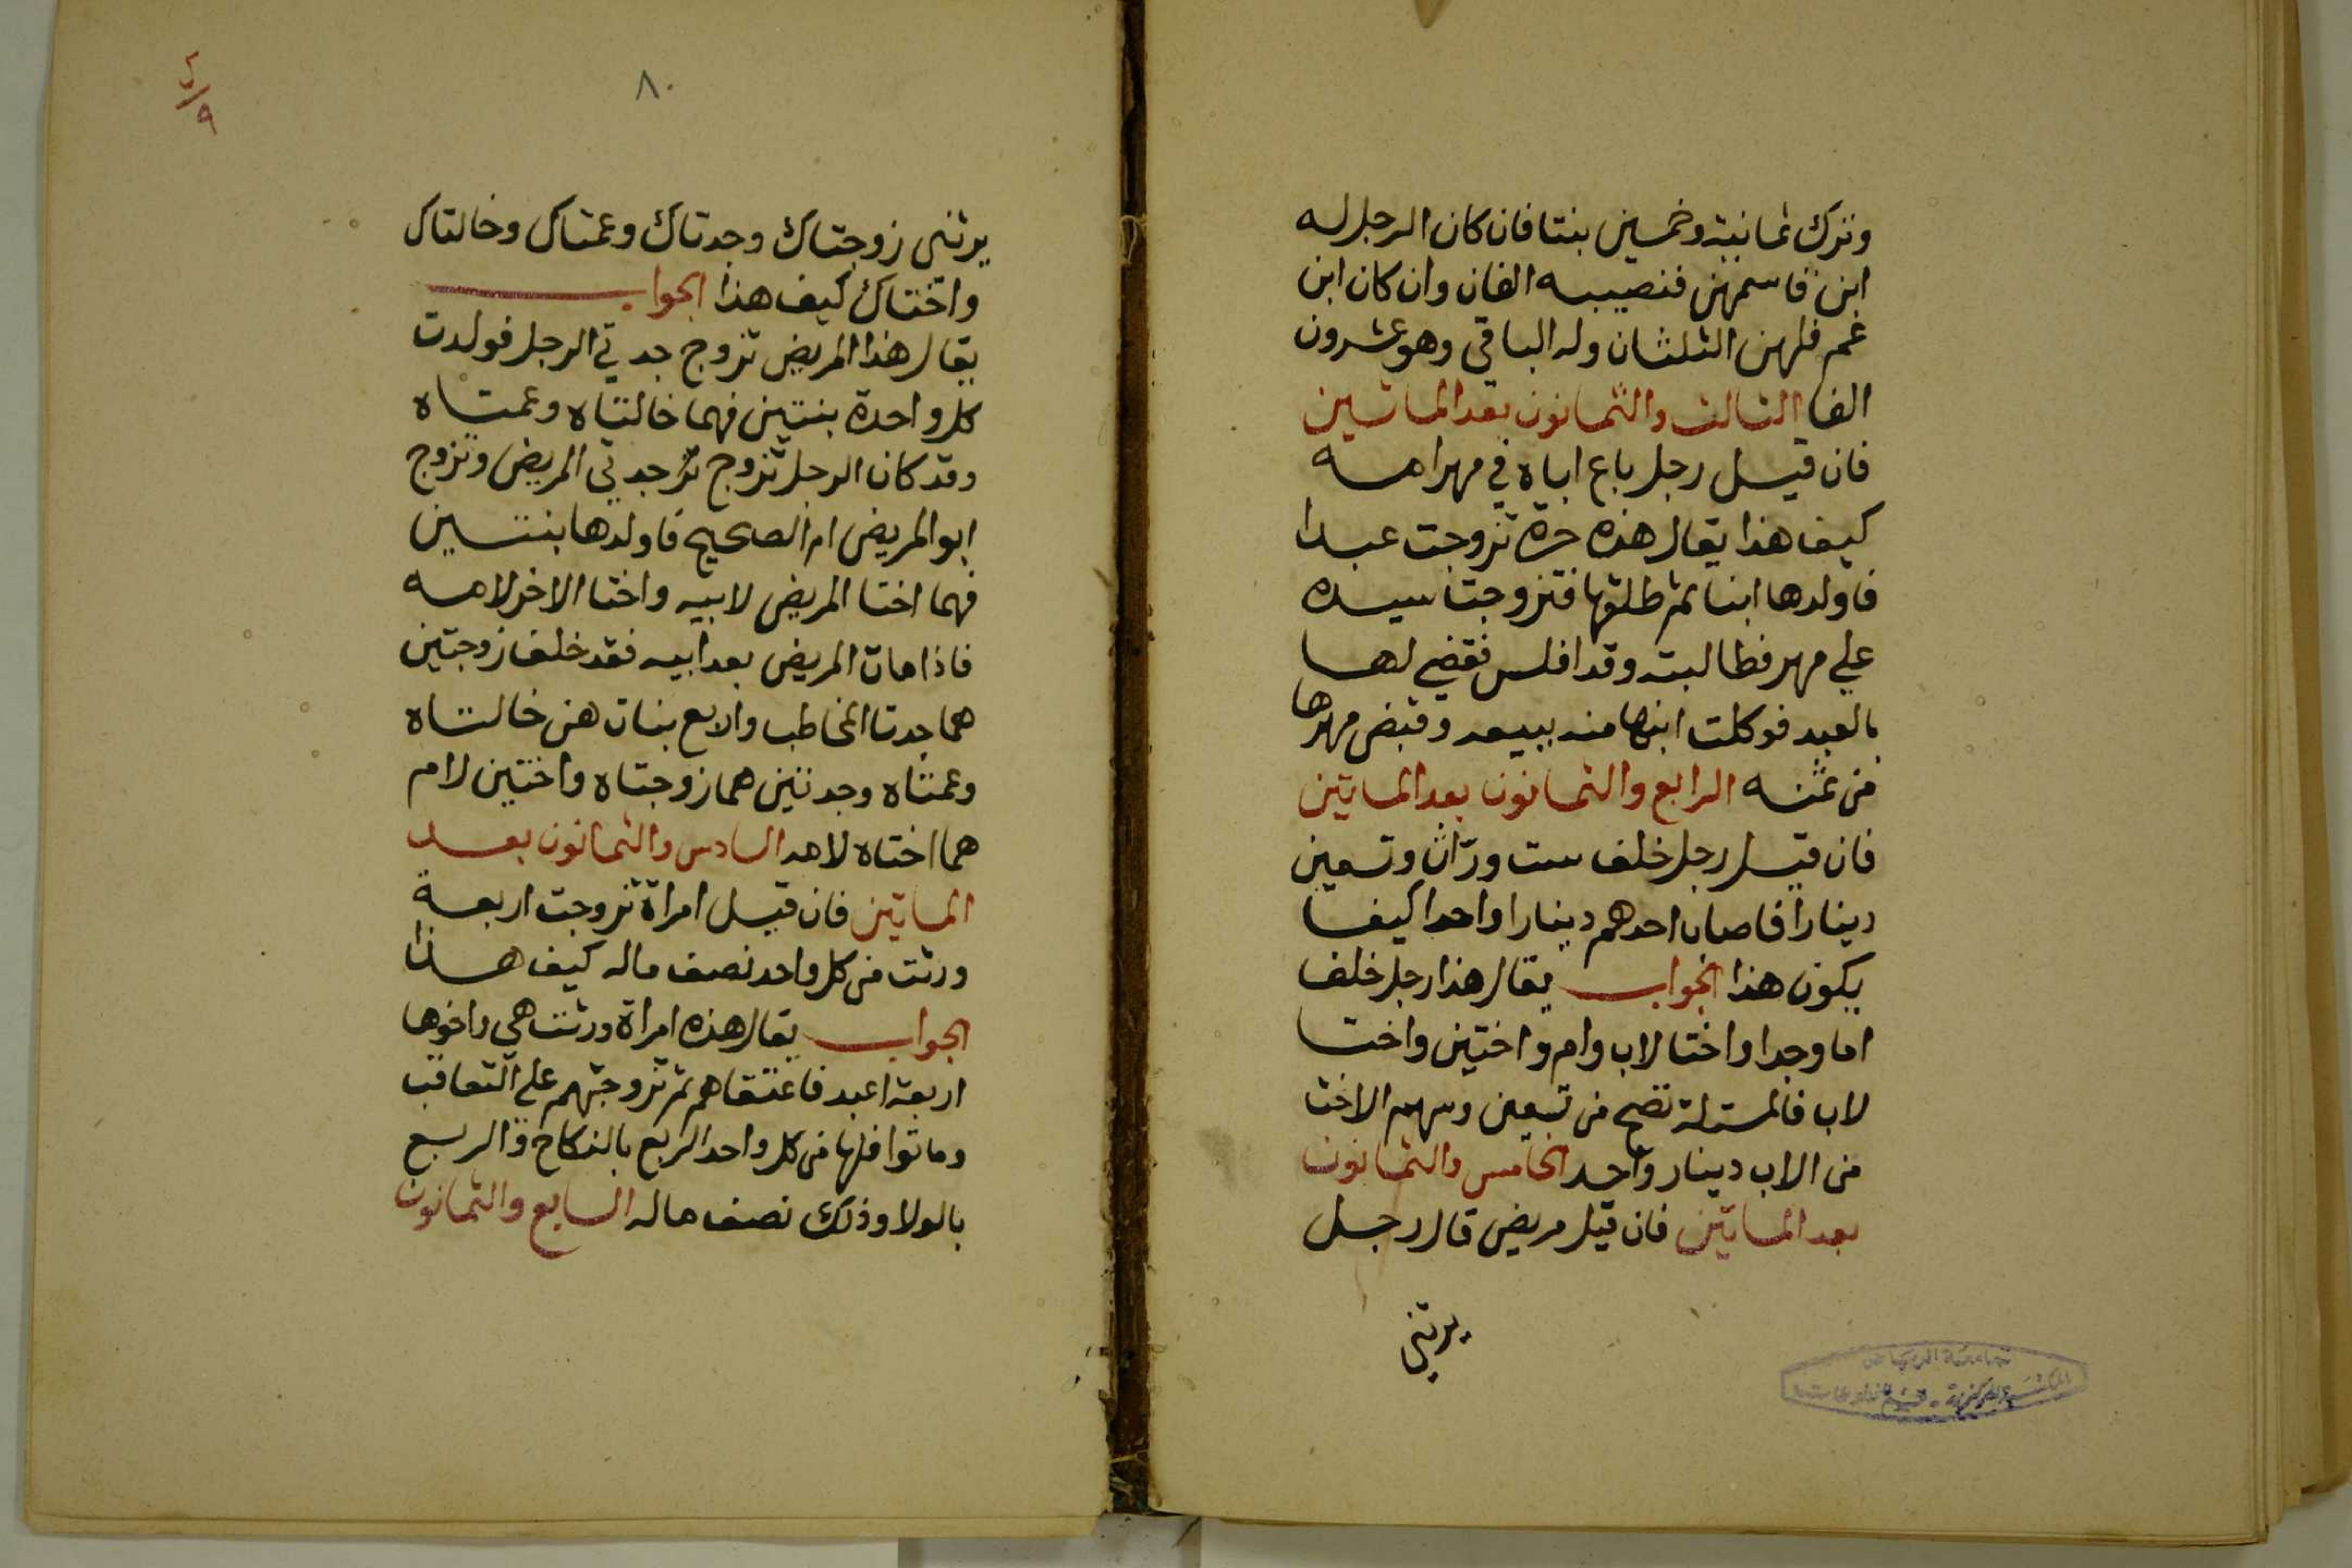 وترك ثمانية وخمسين بنتا فان كان الرجل له
ابن قاسمهن فنصيبه الفان وان كان ابن
عم فلهن الثلثان وله الباقي وهو عشرون
الفا الثالث والثمانون بعد المائتين
فان قيل رجل باع اباه في مهر امه
كيف هذا يقال هذه حرة تزوجت عبدا
فاولدها ابنا ثم طلقها فتزوجت سيده
علي مهر فطالبته وقد افلس فقضي لها
بالعبد فوكلت ابنها منه ببيعه وقبض مهرها
من ثمنه الرابع والثمانون بعد المايتين
فان قيل رجل خلف ست وراث وتسعين
دينارا فاصاب احدهم دينارا واحدا كيف
يكون هذا الجواب يقال هذا رجل خلف
اما وجدا واختا لاب وام واختين واختا
لاب فالمسئلة تصح من تسعين وسهم الاخت
من الاب دينار واحد الخامس والثمانون
بعد المايتين فان قيل مريض قال رجل
يرثني
جامعة الرياض
المكتبة المركزية - قسم المخطوطات
٨٠
يرثني زوجتاك وجدتاك وعمتاك وخالتاك
واختاك كيف هذا الجواب
يقال هذا المريض تزوج جدتي الرجل فولدت
كل واحدة بنتين فهما خالتاه وعمتاه
وقد كان الرجل تزوج جدتي المريض وتزوج
ابو المريض ام الصحيح فاولدها بنتين
فهما اختا المريض لابيه واختا الاخر لامه
فاذا مات المريض بعد ابيه فقد خلف زوجتين
هما جدتا المخاطب والاربع بنات هن خالتاه
وعمتاه وجدتين هما زوجتاه واختين لام
هما اختاه لامه السادس والثمانون بعد
المايتين فان قيل امراة تزوجت اربعة
ورثت من كل واحد نصف ماله كيف هذا
الجواب يقال هذه امراة ورثت هي واخوها
اربعة اعبد فاعتقاهم ثم تزوجتهم علي التعاقب
وماتوا فلها من كل واحد الربع بالنكاح والربع
بالولا وذلك نصف ماله السابع والثمانون